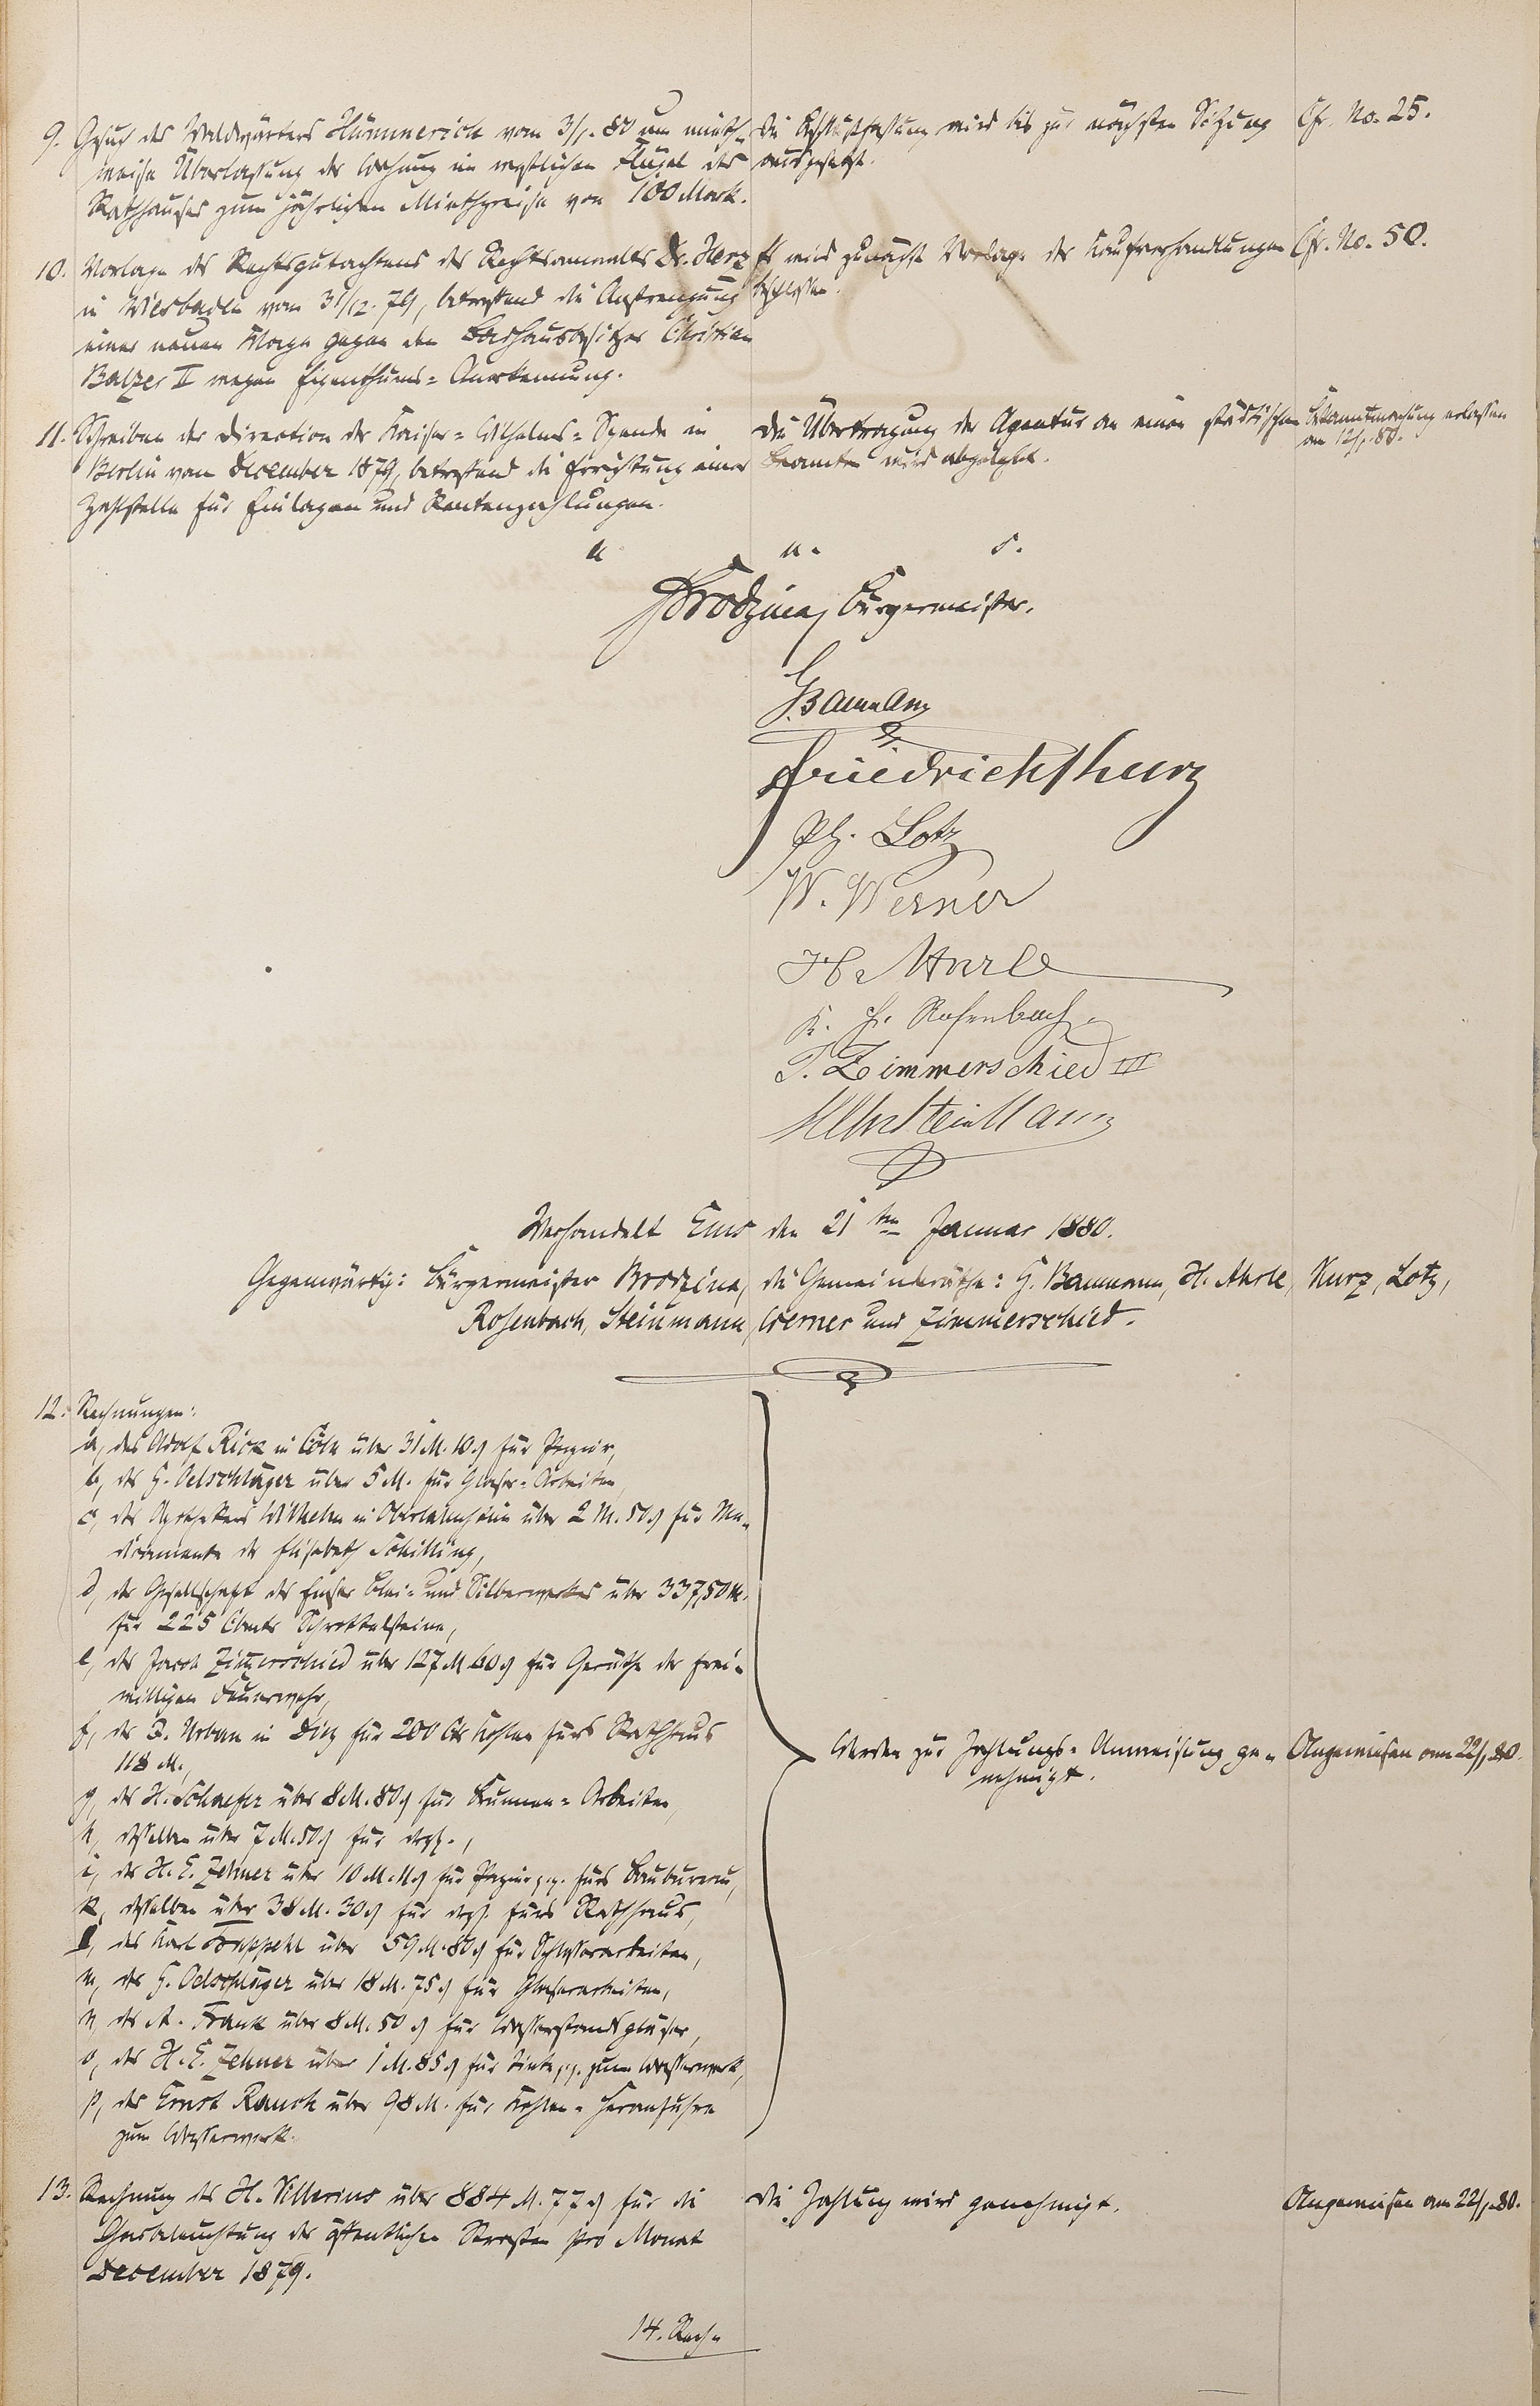 9. Gesuch des Waldwärters Hümmerich vom 3/1. 80 um mieth-
weise Überlassung der Wohnung im westlichen Flügel des
Rathhauses zum jährlichen Miethpreise von 100 Mark.
Die Beschlußfassung wird bis zur nächsten Sitzung
ausgesetzt.
Cfr. No. 25.
10. Vorlage des Rechtsgutachtens des Rechtsanwalts Dr. Herz
in Wiesbaden vom 31/12. 79, betreffend die Anstrengung
einer neuen Klage gegen den Badhausbesitzer Christian
Balzer II wegen Eigenthums-Anerkennung.
Es wird zunächst Vorlage der Kaufverhandlungen
beschlossen.
Cfr. No. 50.
11. Schreiben der Direction der Kaiser-Wilhelms-Spende in
Berlin vom December 1879, betreffend die Errichtung einer
Zahlstelle für Einlagen und Rentenzahlungen.
Die Übertragung der Agentur an einen städtischen
Beamten wird abgelehnt.
Bekanntmachung erlassen
am 12/1. 80.
a. u. s.
Brodzina, Bürgermeister.
G. Baumann
Friedrich Kurz
Ph. Lotz
W. Werner
H. Ahrle
K. H. Rosenbach
P. Zimmerschied III
Steinmann
Verhandelt Ems den 21ten Januar 1880.
Gegenwärtig: Bürgermeister Brodzina, die Gemeinderäthe: G. Baumann, H. Ahrle, Kurz, Lotz,
Rosenbach, Steinmann, Werner und Zimmerschied.
12. Rechnungen:
a, des Adolf Rick in Cöln über 31 M. 10 ₰ für Papier,
b, des G. Oelschläger über 5 M. für Glaser-Arbeiten,
c, des Apothekers Wilhelm in Oberlahnstein über 2 M. 50 ₰ für Me-
dicamente der Elisabeth Schilling,
d, der Gesellschaft des Emser Blei- und Silberwerkes über 337,50 M.
für 225 Cbmtr Schrottelsteine,
e, des Jacob Zimmerschied über 127 M. 60 ₰ für Geräthe der frei-
willigen Feuerwehr,
f, des J. Urban in Diez für 200 Ctr Kohlen fürs Rathhaus
118 M.,
g, des H. Schaefer über 8 M. 80 ₰ für Brunnen-Arbeiten,
h, desselben über 7 M. 50 ₰ für desgl.,
i, des H. E. Zehner über 10 M. 11 ₰ für Papier p.p. fürs Baubureau,
k, desselben über 38 M. 30 ₰ für desgl. fürs Rathhaus,
l, des Karl Trippehl über 59 M. 80 ₰ für Schlosserarbeiten,
m, des G. Oelschläger über 18 M. 75 ₰ für Glaserarbeiten,
n, des A. Frank über 8 M. 50 ₰ für Wasserstandsgläser,
o, des H. E. Zehner über 1 M. 85 ₰ für Tinte p.p. zum Wasserwerk,
p, des Ernst Rauch über 98 M. für Kohlen-Heranfuhren
zum Wasserwerk.
Werden zur Zahlungs-Anweisung ge-
nehmigt.
Angewiesen am 22/1. 80.
13. Rechnung des H. Villarius über 884 M. 77 ₰ für die
Gasbeleuchtung der öffentlichen Strassen pro Monat
December 1879.
Die Zahlung wird genehmigt.
Angewiesen am 22/1. 80.
14. Rech-